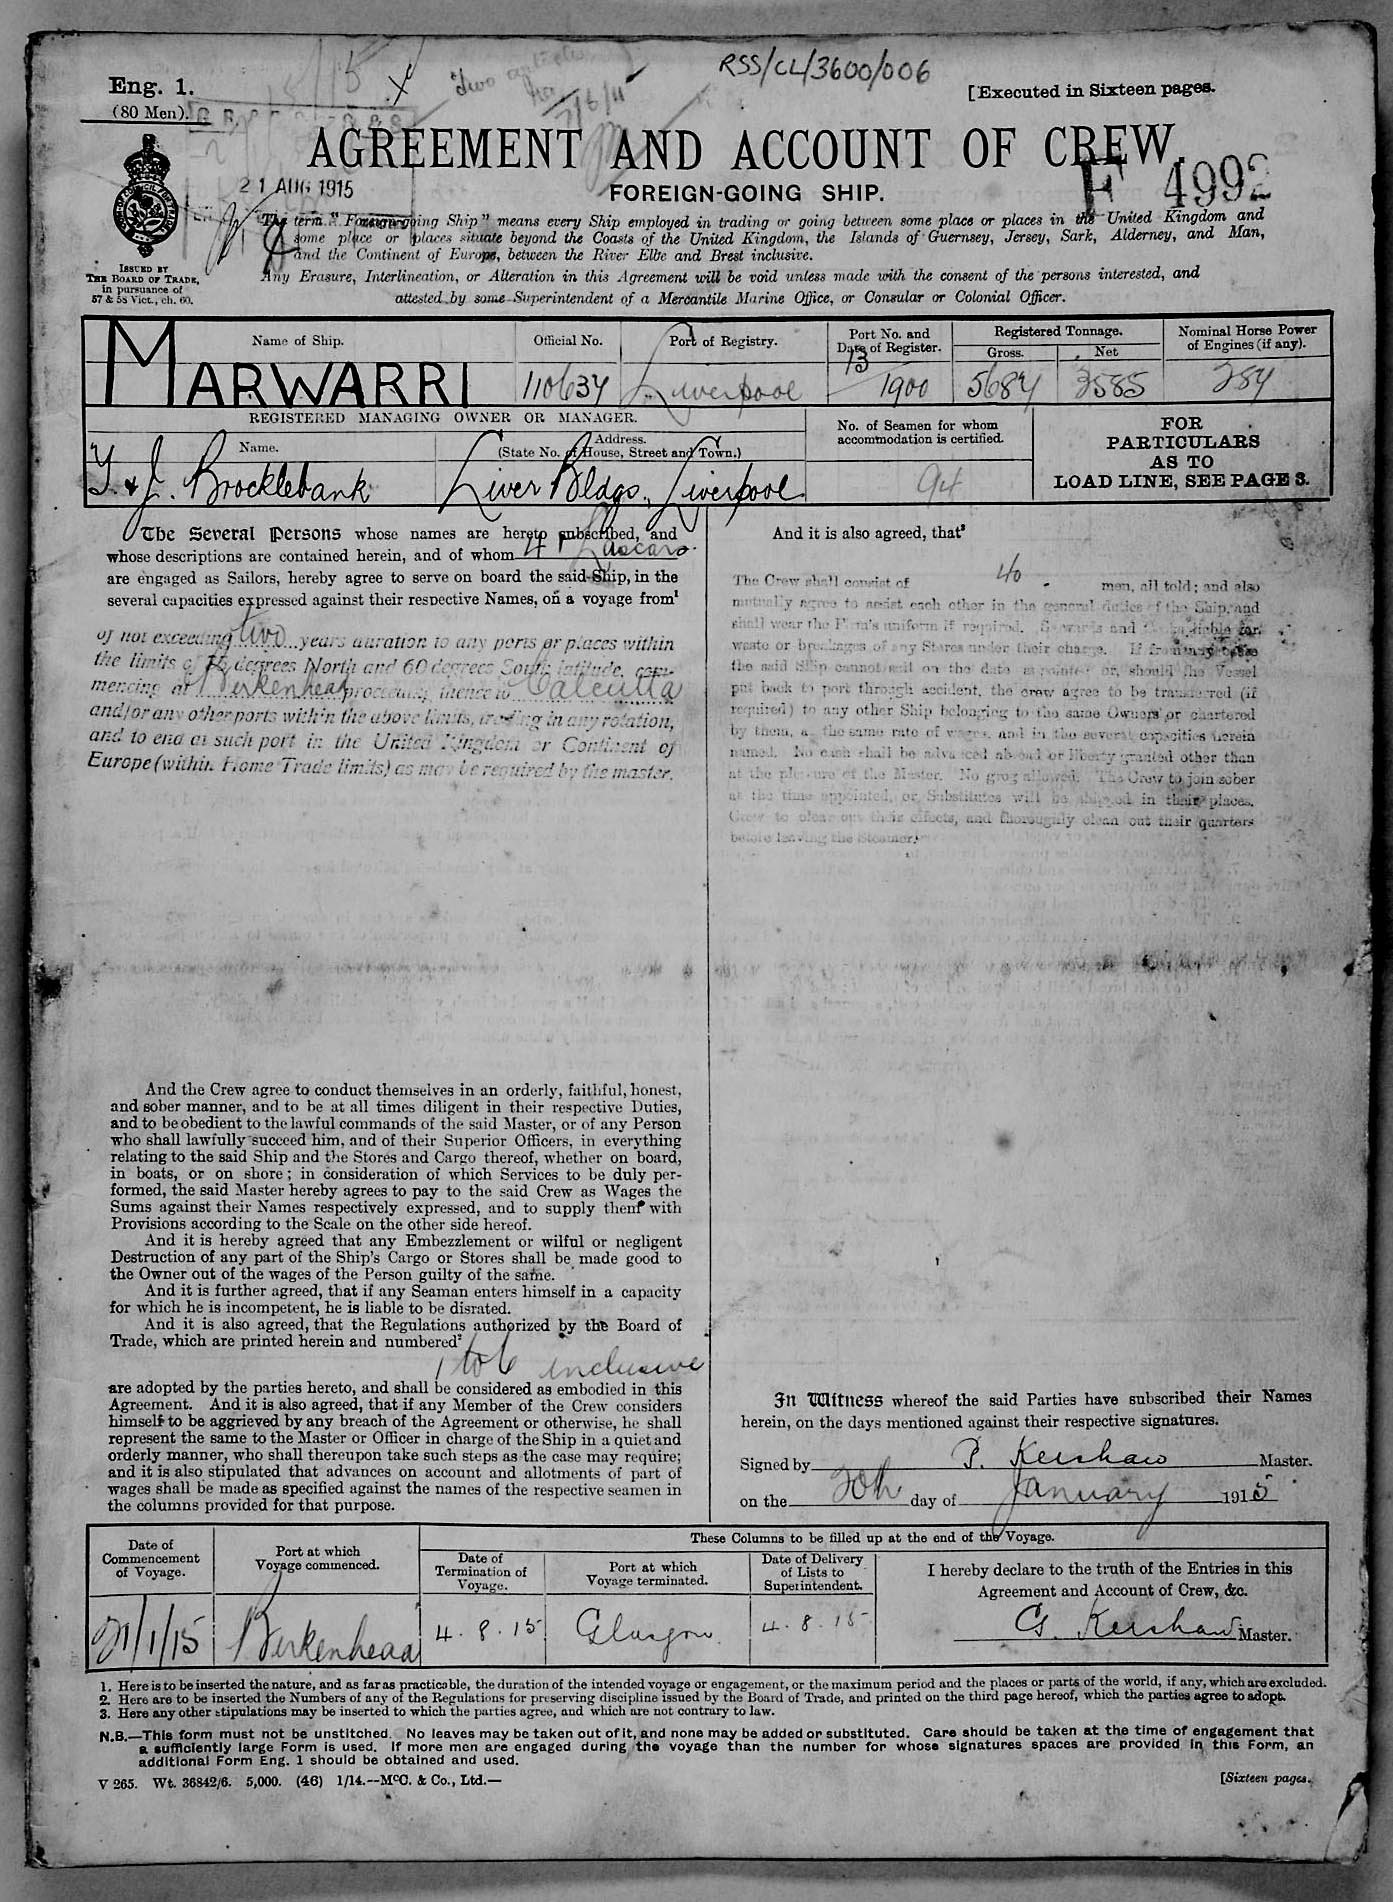 RSS/CL/3600/006
Eng. 1.
(80 Men).
[Executed in Sixteen pages.
Two articles
7/6/11
AGREEMENT AND ACCOUNT OF CREW.
21 AUG 1915
FOREIGN-GOING SHIP.
F 4992
The term "Foreign-going Ship" means every Ship employed in trading or going between some place or places in the United Kingdom and
some place or places situate beyond the Coasts of the United Kingdom, the Islands of Guernsey, Jersey, Sark, Alderney, and Man,
and the Continent of Europe, between the River Elbe and Brest inclusive.
Any Erasure, Interlineation, or Alteration in this Agreement will be void unless made with the consent of the persons interested, and
attested by some Superintendent of a Mercantile Marine Office, or Consular or Colonial Officer.
ISSUED BY
THE BOARD OF TRADE,
in pursuance of
57 & 58 Vict., ch. 60.
Name of Ship.
MARWARRI
Official No.
110634
Port of Registry.
Liverpool
Port No. and
Date of Register.
13
1900
Registered Tonnage.
Gross.
5684
Net
3585
Nominal Horse Power
of Engines (if any).
384
REGISTERED MANAGING OWNER OR MANAGER.
Name.
T. & J. Brocklebank
Address.
(State No. of House, Street and Town.)
Liver Bldgs, Liverpool
No. of Seamen for whom
accommodation is certified.
94
FOR
PARTICULARS
AS TO
LOAD LINE, SEE PAGE 3.
The Several Persons whose names are hereto subscribed, and
whose descriptions are contained herein, and of whom 41 Lascars
are engaged as Sailors, hereby agree to serve on board the said Ship, in the
several capacities expressed against their respective Names, on a voyage from¹
of not exceeding two years duration to any ports or places within
the limits of 75 degrees North and 60 degrees South latitude, com-
mencing at Birkenhead proceeding thence to Calcutta
and/or any other ports within the above limits, trading in any rotation,
and to end at such port in the United Kingdom or Continent of
Europe (within Home Trade limits) as may be required by the master.
And the Crew agree to conduct themselves in an orderly, faithful, honest,
and sober manner, and to be at all times diligent in their respective Duties,
and to be obedient to the lawful commands of the said Master, or of any Person
who shall lawfully succeed him, and of their Superior Officers, in everything
relating to the said Ship and the Stores and Cargo thereof, whether on board,
in boats, or on shore; in consideration of which Services to be duly per-
formed, the said Master hereby agrees to pay to the said Crew as Wages the
Sums against their Names respectively expressed, and to supply them with
Provisions according to the Scale on the other side hereof.
And it is hereby agreed that any Embezzlement or wilful or negligent
Destruction of any part of the Ship's Cargo or Stores shall be made good to
the Owner out of the wages of the Person guilty of the same.
And it is further agreed, that if any Seaman enters himself in a capacity
for which he is incompetent, he is liable to be disrated.
And it is also agreed, that the Regulations authorized by the Board of
Trade, which are printed herein and numbered²
1 to 6 inclusive
are adopted by the parties hereto, and shall be considered as embodied in this
Agreement. And it is also agreed, that if any Member of the Crew considers
himself to be aggrieved by any breach of the Agreement or otherwise, he shall
represent the same to the Master or Officer in charge of the Ship in a quiet and
orderly manner, who shall thereupon take such steps as the case may require;
and it is also stipulated that advances on account and allotments of part of
wages shall be made as specified against the names of the respective seamen in
the columns provided for that purpose.
And it is also agreed, that³
The Crew shall consist of 40 men, all told; and also
mutually agree to assist each other in the general duties of the Ship, and
shall wear the Firm's uniform if required. Stewards and Cooks liable for
waste or breakages of any Stores under their charge. If from any cause
the said Ship cannot sail on the date appointed or, should the Vessel
put back to port through accident, the crew agree to be transferred (if
required) to any other Ship belonging to the same Owners or chartered
by them, at the same rate of wages, and in the several capacities herein
named. No cash shall be advanced abroad or liberty granted other than
at the pleasure of the Master. No grog allowed. The Crew to join sober
at the time appointed, or Substitutes will be shipped in their places.
Crew to clear out their effects, and thoroughly clean out their quarters
before leaving the Steamer.
In Witness whereof the said Parties have subscribed their Names
herein, on the days mentioned against their respective signatures.
Signed by P. Kershaw Master.
on the 20th day of January 1915
Date of
Commencement
of Voyage.
21/1/15
Port at which
Voyage commenced.
Birkenhead
These Columns to be filled up at the end of the Voyage.
Date of
Termination of
Voyage.
4. 8. 15
Port at which
Voyage terminated.
Glasgow
Date of Delivery
of Lists to
Superintendent.
4. 8. 15
I hereby declare to the truth of the Entries in this
Agreement and Account of Crew, &c.
G. Kershaw Master.
1. Here is to be inserted the nature, and as far as practicable, the duration of the intended voyage or engagement, or the maximum period and the places or parts of the world, if any, which are excluded.
2. Here are to be inserted the Numbers of any of the Regulations for preserving discipline issued by the Board of Trade, and printed on the third page hereof, which the parties agree to adopt.
3. Here any other stipulations may be inserted to which the parties agree, and which are not contrary to law.
N.B.—This form must not be unstitched. No leaves may be taken out of it, and none may be added or substituted. Care should be taken at the time of engagement that
a sufficiently large Form is used. If more men are engaged during the voyage than the number for whose signatures spaces are provided in this Form, an
additional Form Eng. 1 should be obtained and used.
V 265. Wt. 36842/6. 5,000. (46) 1/14.—McC. & Co., Ltd.—
[Sixteen pages.